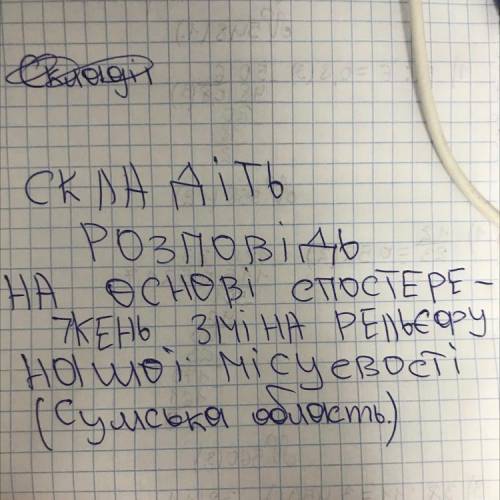 СКЛАДІТЬ
РОЗПОВІДЬ
НА ОСНОВІ СПОСТЕРЕ-
ЖЕНЬ ЗМІНА РЕЛЬЄФУ
НАШОЇ МІСЦЕВОСТІ
(Сумська область.)